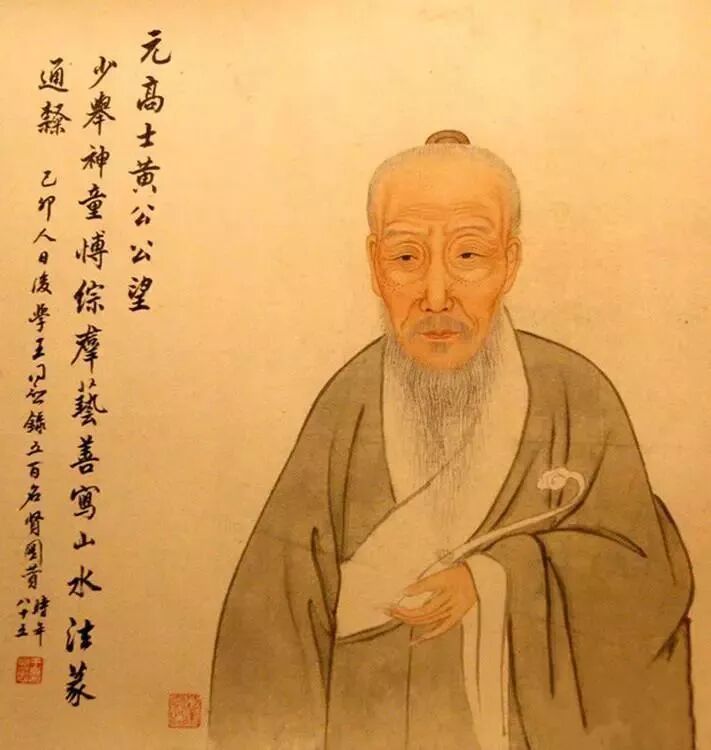 元高士黃公公望
少舉神童愽綜羣藝善寫山水法篆
通隸
己卯人日後學王同愈錄五百名賢圖贊時年
八十五